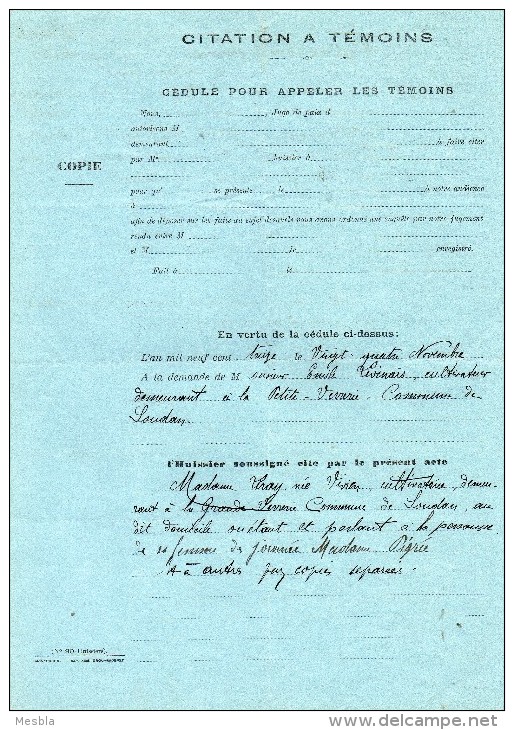 CITATION A TÉMOINS
CÉDULE POUR APPELER LES TÉMOINS
Nous, Juge de paix d
autorisons M
demeurant à faire citer
COPIE
par Me huissier à
pour qu' se présente le à notre audience
à
afin de déposer sur les faits au sujet desquels nous avons ordonné une enquête par notre jugement
rendu entre M
et M le enregistré.
Fait à le
En vertu de la cédule ci-dessus:
L'an mil neuf cent treize le Vingt-quatre Novembre
A la demande de M Emile cultivateur
demeurant à la Petite-Verrerie Commune de
Loudan
l'Huissier soussigné cite par le présent acte
Madame née Vivien cultivatrice, demeu-
rant à la Grande Verrerie Commune de Loudan, au
dit domicile où étant et parlant à la personne
de sa femme de journée Madame Pigrée
et à autres par copies séparées.
(N° 90 Huissiers)
Mesbla
delcampe.net